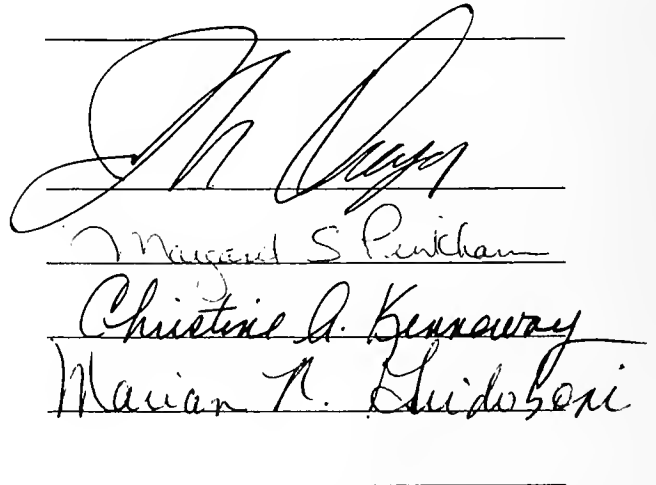 Margaret S Pinkham
Christine A. Kennaway
Marian R. Guidoboni